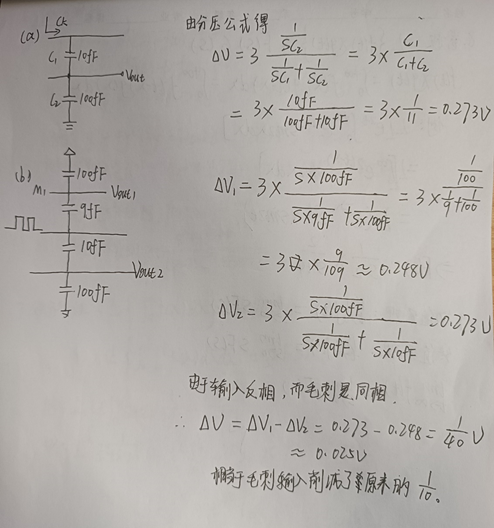 (a) Ck
C₁ 10fF
Vout
C₂ 100fF
(b)
100fF
M₁ Vout1
9fF
10fF
Vout2
100fF
由分压公式得
ΔV = 3 (1/SC₂)/(1/SC₁ + 1/SC₂) = 3 × C₁/(C₁+C₂)
= 3 × 10fF/(100fF+10fF) = 3 × 1/11 = 0.273V
ΔV₁ = 3 × (1/(S×100fF))/(1/(S×9fF) + 1/(S×100fF)) = 3 × (1/100)/(1/9 + 1/100)
= 3 × 9/109 ≈ 0.248V
ΔV₂ = 3 × (1/(S×100fF))/(1/(S×100fF) + 1/(S×10fF)) = 0.273V
由于输入反相,而毛刺是同相.
∴ ΔV = ΔV₁ - ΔV₂ = 0.273 - 0.248 = 1/40 V
≈ 0.025V
相当于毛刺输入削活了原来的 1/10。